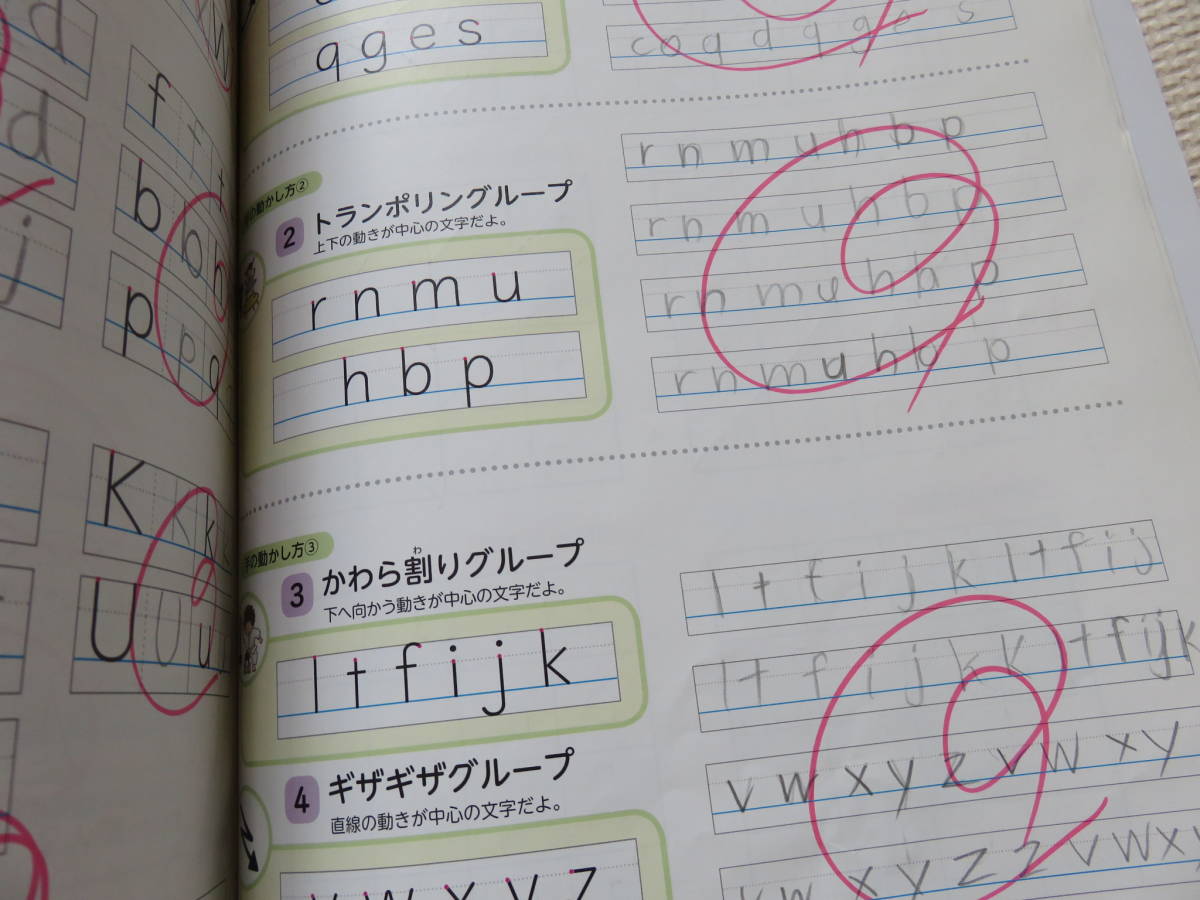 d
d
j
f f
b b b
p p p
K K k
U U u
q g e s
c o q d q g e s
手の動かし方②
2 トランポリングループ
上下の動きが中心の文字だよ。
r n m u
h b p
r n m u h b p
r n m u h b p
r n m u h b p
r n m u h b p
手の動かし方③
3 かわら割りグループ
わ
下へ向かう動きが中心の文字だよ。
l t f i j k
l t f i j k l t f i j
l t f i j k k t f i j k
4 ギザギザグループ
直線の動きが中心の文字だよ。
v w x y z
v w x y z v w x y
v w x y z z v w x y